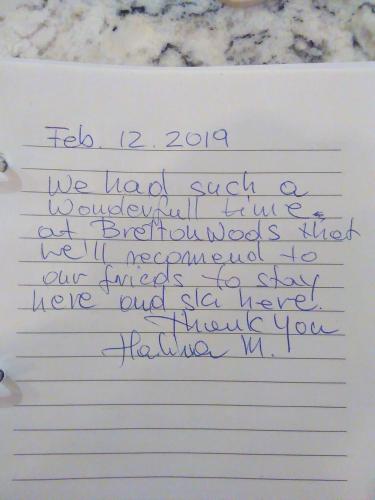 Feb. 12. 2019
We had such a
wonderfull time
at Bretton Woods that
we'll recomend to
our frieds to stay
here and ski here.
Thank you
Halina M.